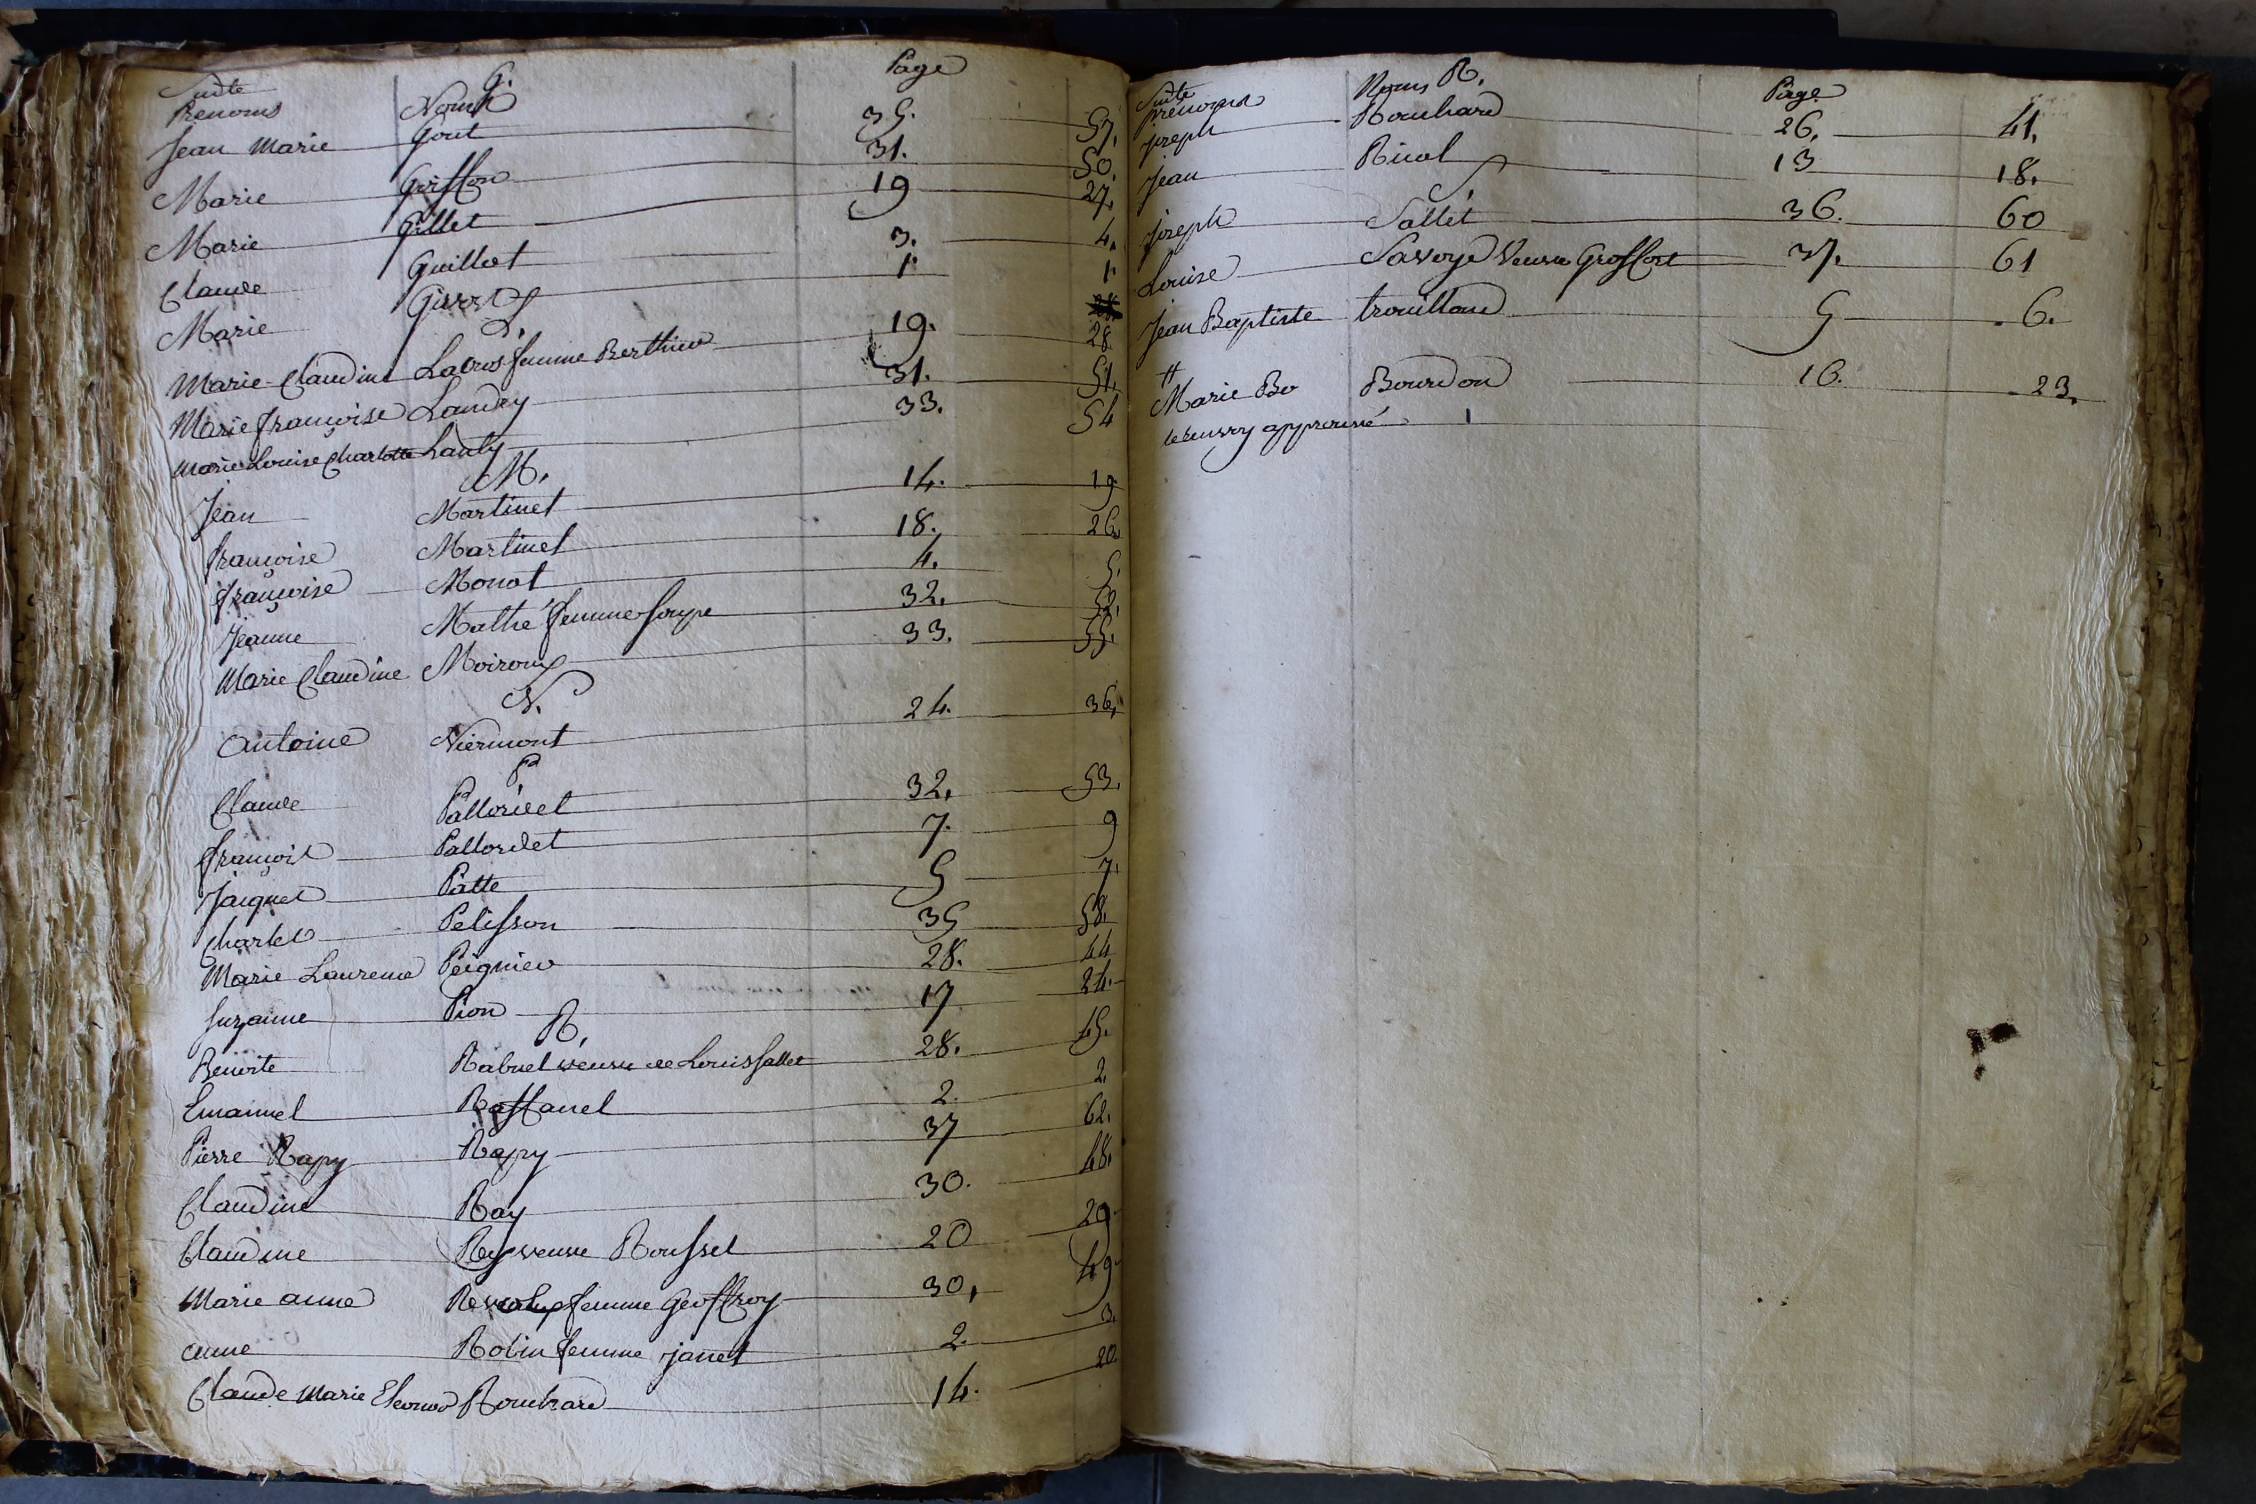 Suite G. Page
Prenoms Noms
Jean Marie Gout 35. 57.
Marie Goiffon 31. 50.
Marie Gillet 19 27.
Claude Guillot 3. 4.
Marie 1. 1.
L. 28
Marie Claudine Lacros femme Berthier 19. 28
Marie françoise Landey 31. 51.
Marie Louise Charlotte Lauly 33. 54
M.
Jean Martinet 14. 19
françoise Martinet 18. 26.
françoise Monot 4. 5.
Jeanne Mathé femme Soupe 32. 52.
Marie Claudine Moiroux 33. 55.
N.
antoine Niermont 24. 36.
P
Claude Pallordet 32. 53.
françois Pallordet 7. 9
Jacques Patte 5 7.
Charles Pelisson 35 58.
Marie Laurence Peignier 28. 44
Suzanne Pion 17 24.
R.
Benoite Rabuel veuve de Louis Sallet 28. 45.
Emanuel Raffanel 2. 2.
Pierre Rapy Rapy 37 62.
Claudine Ray 30. 48.
Claudine Rey veuve Rousset 20 29
Marie anne femme Geoffroy 30, 49
anne Robin femme janet 2. 3.
Claude Marie Eleonor Rouchard 14. 20
Suite Noms R. Page
prenoms
joseph Rouchard 26. 41.
Jean Ruol 13 18.
S
joseph Sallet 36. 60
Louise Savoye Veuve Groffort 37. 61
Jean Baptiste trouilloud 5 6.
#
Marie Bo Bourdon 16. 23.
approuvé